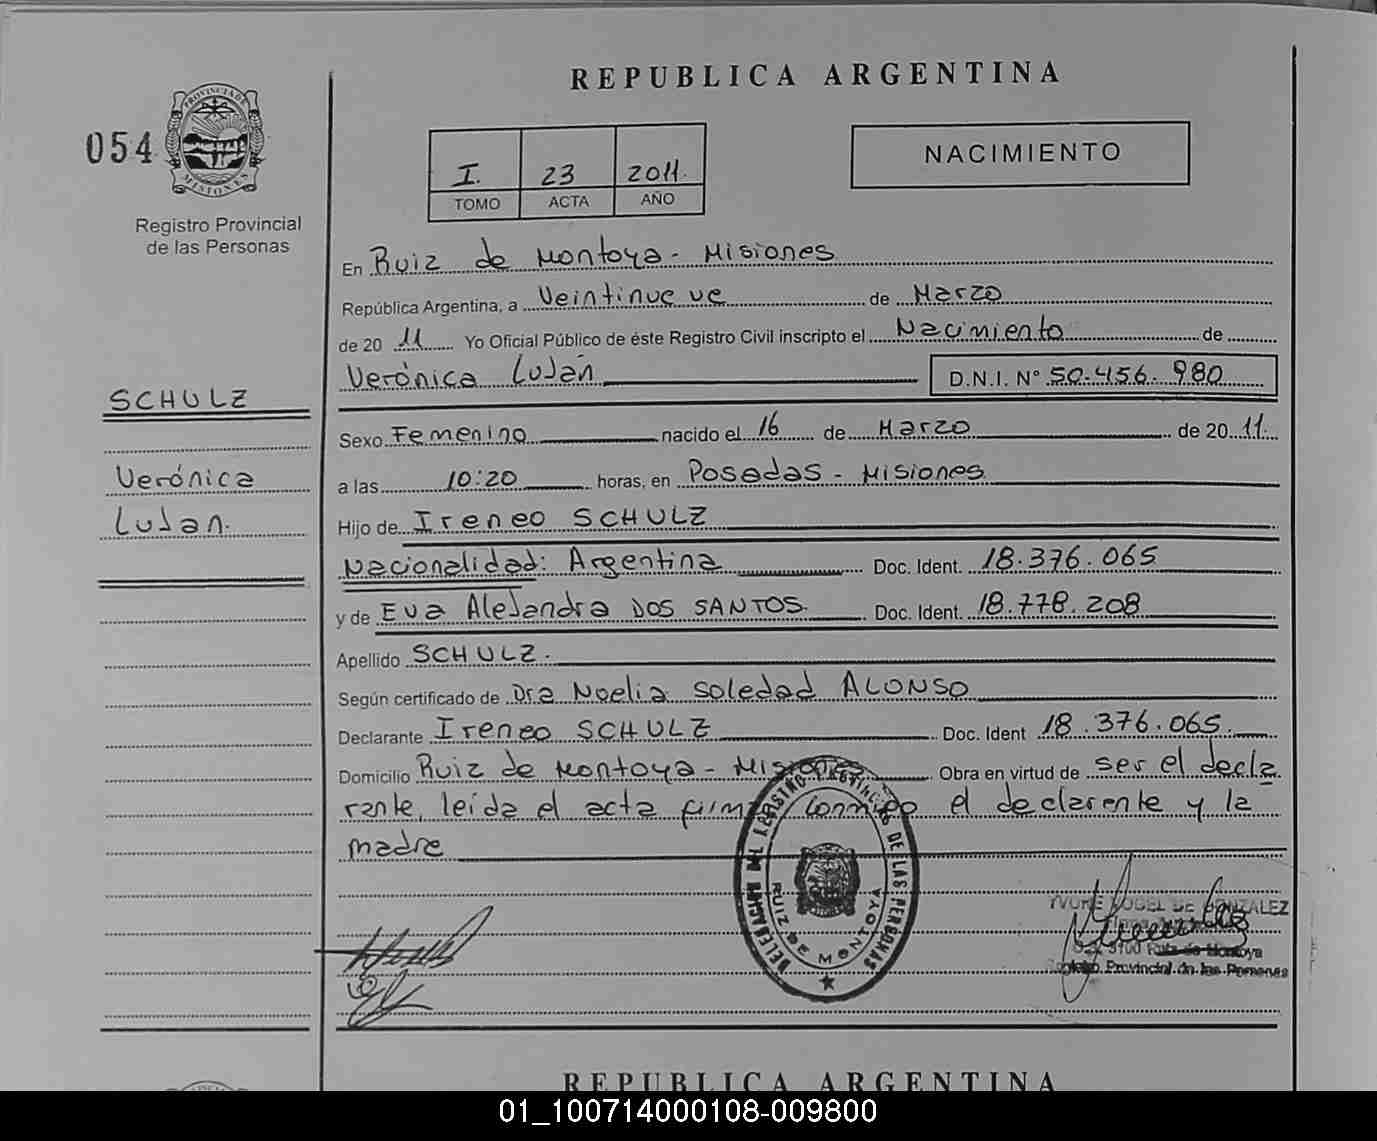 REPUBLICA ARGENTINA
054
PROVINCIA DE
MISIONES
Registro Provincial
de las Personas
I. 23 2011.
TOMO ACTA AÑO
NACIMIENTO
En Ruiz de Montoya - Misiones
República Argentina, a Veintinueve de Marzo
de 20 11 Yo Oficial Público de éste Registro Civil inscripto el Nacimiento de
Verónica Luján D.N.I. N° 50.456.980
SCHULZ
Verónica
Lujan.
Sexo Femenino nacido el 16 de Marzo de 20 11.
a las 10:20 horas, en Posadas - Misiones
Hijo de Ireneo SCHULZ
Nacionalidad: Argentina Doc. Ident. 18.376.065
y de Eva Alejandra DOS SANTOS. Doc. Ident. 18.778.208
Apellido SCHULZ.
Según certificado de Dra Noelia Soledad ALONSO
Declarante Ireneo SCHULZ Doc. Ident 18.376.065
Domicilio Ruiz de Montoya - Misiones Obra en virtud de ser el decla
rante, leída el acta firma conmigo el declarente y la
madre
DELEGACION DEL REGISTRO PROVINCIAL DE LAS PERSONAS
RUIZ DE MONTOYA
DE GONZALEZ
Ruiz de Montoya
Registro Provincial de las Personas
REPUBLICA ARGENTINA
01_100714000108-009800